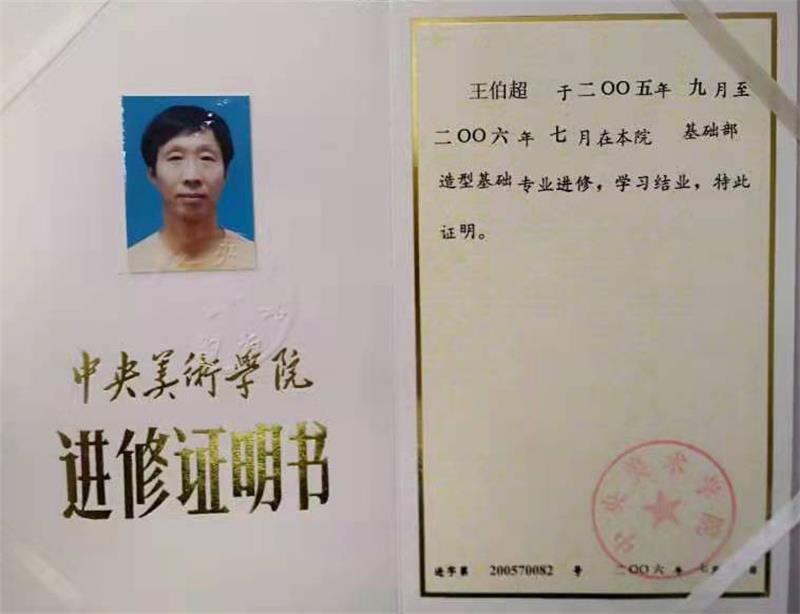 中央美術學院
进修证明书
王伯超 于二〇〇五年 九月至
二〇〇六年 七月在本院 基础部
造型基础专业进修，学习结业，特此
证明。
中央美术学院
进字第 200570082 号 二〇〇六年 七月